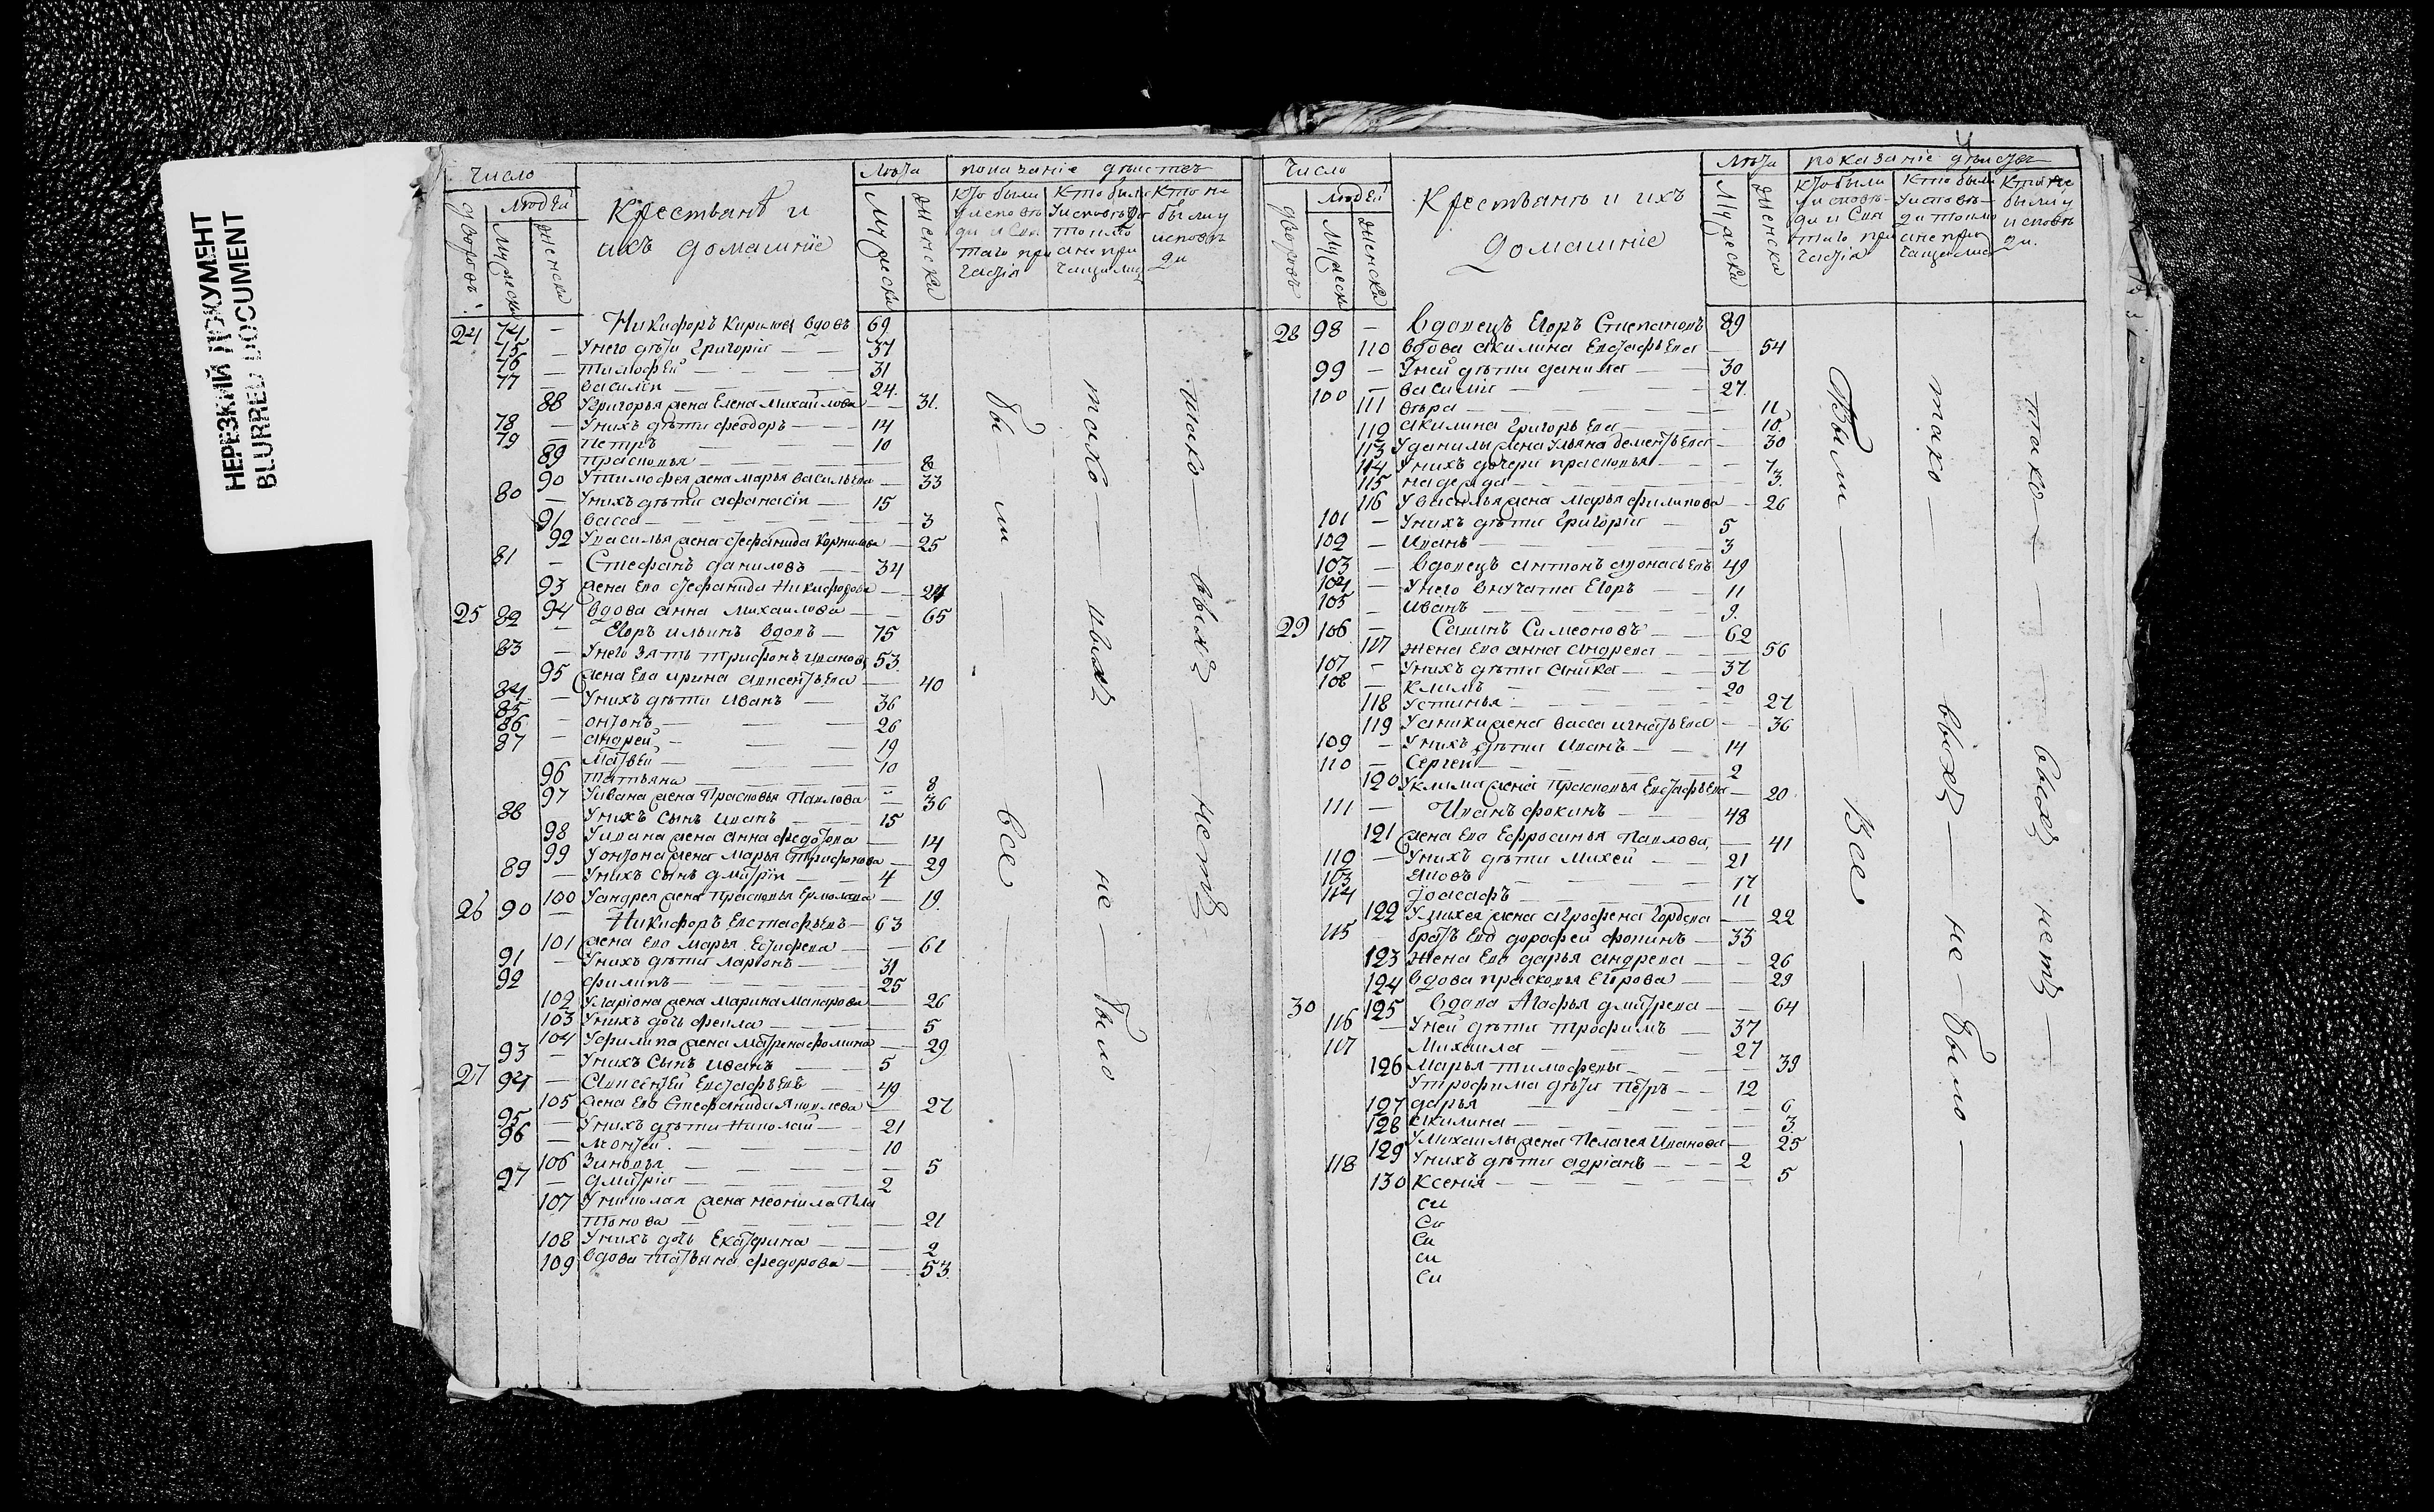 НЕРЕЗКИЙ ДОКУМЕНТ
BLURRED DOCUMENT
Число
Людей
дворовъ
Мужеска
женска
Крестьянѣ и
ихъ домашніе
Лѣта
Мужеска
женска
показаніе дѣистве
кто были у исповѣди и Свя таго причастія
Кто были у исповѣди токмо а не причащались
Кто не были у исповѣди
24 74 — Никифоръ Кирилов вдовъ 69
75 — У него дѣти Григорій — 37
76 — тимофей — 31
77 — василій — 24
88 У Григорья жена Елена Михайлова — 31
78 — У нихъ дѣти феодоръ — 14
79 — петръ — 10
89 прасковья — 8
90 У тимофея жена марья васильева — 33
80 — У нихъ дѣти афанасіи — 15
91 васса — 3
92 У василья жена стефанида Корнилова — 25
81 — Стефанъ даниловъ — 34
93 жена Ево стефанида Никифорова — 24
94 вдова анна михаилова — 65
25 82 — Егоръ ильинъ вдовъ — 75
83 — У него зять трифонъ иванов 53
95 жена Ево ирина авксентьева — 40
84 — У нихъ дѣти иванъ — 36
85 — онтонъ — 26
86 — андрей — 19
87 — матвей — 10
96 татьяна — 8
97 У ивана жена Прасковья Павлова — 36
88 У нихъ сынъ иванъ — 15
98 У ивана жена анна федотова — 14
99 У онтона жена марья трифонова — 29
89 — У нихъ сынъ дмитріи — 4
100 У андрея жена прасковья Ермолаева — 19
26 90 — Никифоръ Евстафьевъ — 63
101 жена Ево марья — 61
91 — У нихъ дѣти ларіонъ — 31
92 филипъ — 25
102 У ларіона жена марина макарова — 26
103 У нихъ дочь фекла — 5
104 У филипа жена матрена фомина — 29
93 — У нихъ Сынъ иванъ — 5
27 94 — Авксентей Евстафьевъ — 49
105 жена Ево Стефанида Яковлева — 27
95 — У нихъ дѣти николай — 21
96 — — 10
106 Зиновья — 5
97 — дмитріи — 2
107 У николая жена неонила Пла
тонова — 21
108 У нихъ дочь Екатерина — 2
109 вдова татьяна федорова — 53
бы ли — все
тако — ивых — не — было
тако — ввых — нетъ
Число
Людей
дворовъ
Мужеска
женска
Крестьянѣ и ихъ
домашніе
Лѣта
Мужеска
женска
показаніе дѣистве
кто были у исповѣди и Свя таго причастія
Кто были у исповѣди токмо а не причащались
Кто не были у исповѣди.
28 98 — вдовецъ Егоръ Степановъ 89
110 вдова акилина Евстафьева — 54
99 — У ней дѣти данила — 30
100 — василій — 27
111 вѣра — 11
112 акилина Григорьева — 10
113 У данилы жена Ульяна дементьева — 30
114 У нихъ дочери прасковья — 7
115 надежда — 3
116 У василья жена Марья филипова — 26
101 — У нихъ дѣти Григорій — 5
102 — Иванъ — 3
103 — вдовецъ антонъ афонасьевъ 49
104 — У него внучата Егоръ — 11
105 — иванъ — 9
29 106 — Савинъ Симеоновъ — 62
117 жена Ево анна андреева — 56
107 — У нихъ дѣти аника — 37
108 — климъ — 20
118 устинья — 27
119 У аники жена васса игнатьева — 36
109 — У нихъ дѣти иванъ — 14
110 — Сергей — 2
120 У клима жена прасковья Евстафьева — 20
111 — Иванъ фокинъ — 48
121 жена Ево Ефросинья Павлова — 41
112 — У нихъ дѣти михей — 21
113 яковъ — 17
114 Іоасафъ — 11
122 У михея жена аграфена Гордеева — 22
115 братъ Ево дорофей фокинъ — 33
123 жена Ево дарья андреева — 26
124 вдова прасковья Егорова — 29
30 125 вдова Агафья дмитрева — 64
116 — У ней дѣти трофимъ — 37
117 Михаила — 27
126 марья тимофеева — 39
У трофима дѣти петръ — 12
127 дарья — 6
128 акилина — 3
129 У михаилы жена Пелагея иванова — 25
118 У нихъ дѣти адріанъ — 2
130 ксенія — 5
си
си
си
си
си
Были — Все
тако — ввых — не — было
тако — ввых нетъ